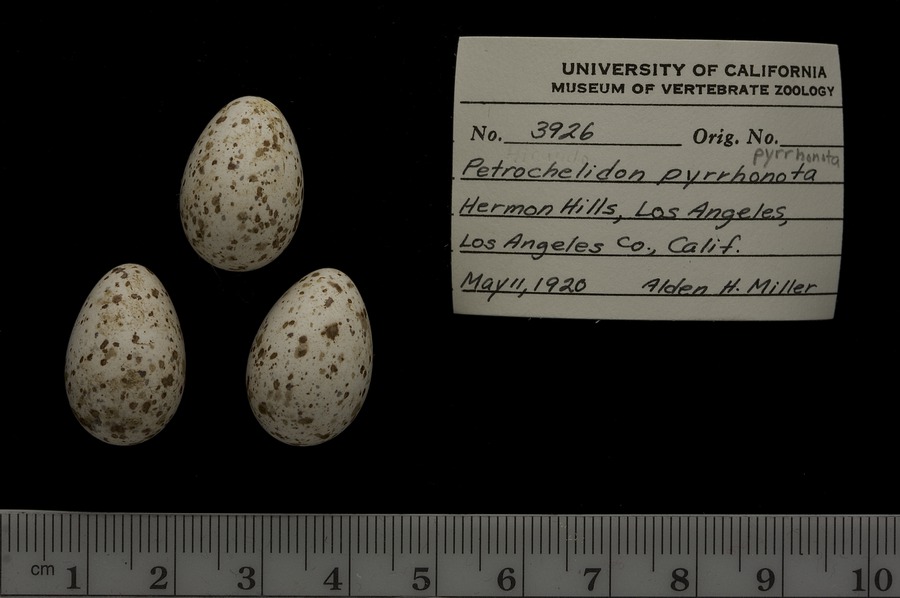 UNIVERSITY OF CALIFORNIA
MUSEUM OF VERTEBRATE ZOOLOGY
No. 3926 Orig. No.
pyrrhonota
Petrochelidon pyrrhonota
Hermon Hills, Los Angeles,
Los Angeles Co., Calif.
May 11, 1920 Alden H. Miller
cm 1 2 3 4 5 6 7 8 9 10